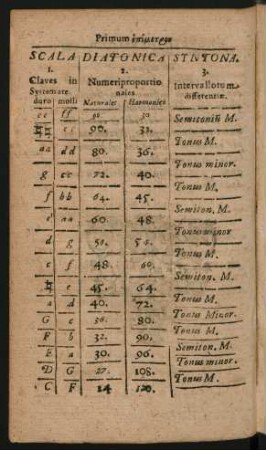 Primum ἐπίμετρον
SCALA DIATONICA SYNTONA.
1. 2. 3.
Claves in Numeri proportio Intervallorum
Systemate nales differentiæ.
duro molli Naturales Harmonici
cc ff 30 Semitoniũ M.
♮♮ ee 90. 32. Tonus M.
aa dd 80. 36. Tonus minor.
g cc 72. 40. Tonus M.
f bb 64. 45. Semiton. M.
e aa 60. 48. Tonus minor
d g 54. Tonus M.
c f 48 60. Semiton. M.
♮ e 45. 64. Tonus M.
a d 40. 72. Tonus Minor.
G c 36. 80. Tonus M.
F b 32. 90. Semiton. M.
E a 30. 96. Tonus minor.
D G 27. 108. Tonus M.
C F 14 120.